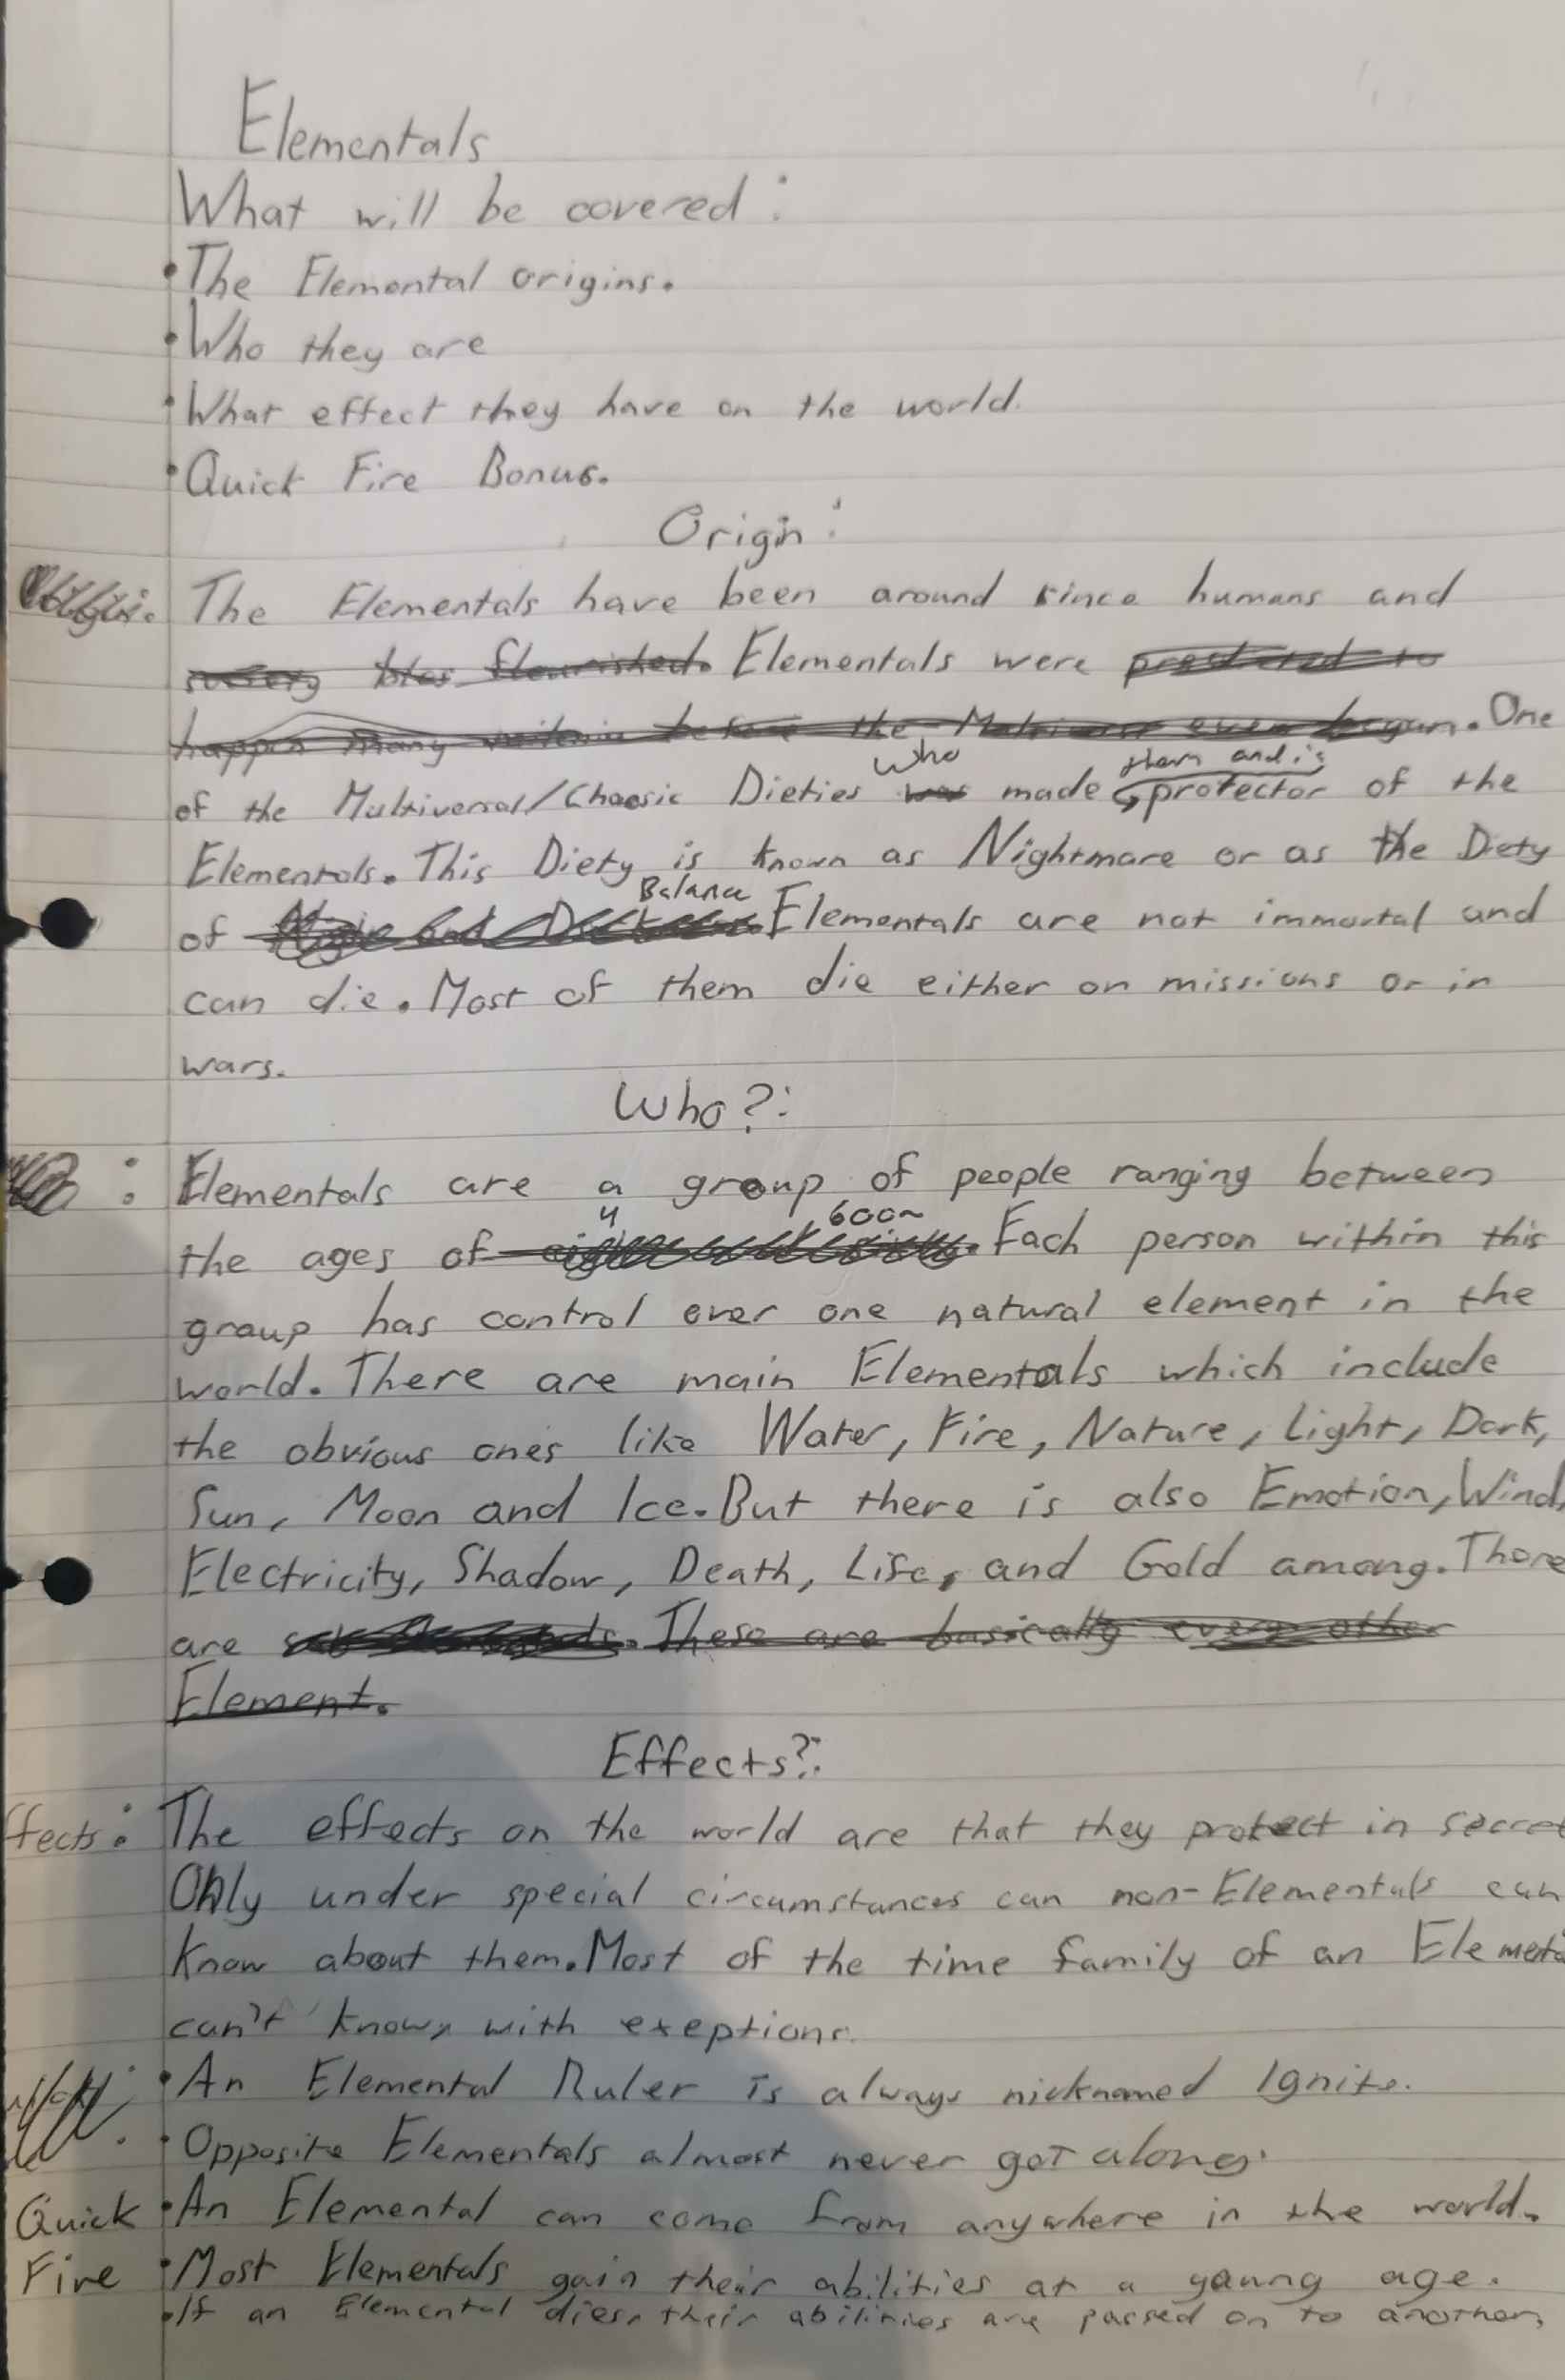 Elementals
What will be covered:
•The Elemental origins.
•Who they are
•What effect they have on the world.
•Quick Fire Bonus.
Origin:
The Elementals have been around since humans and
flourished. Elementals were
happen many before the even began. One
who them and is
of the Multiversal/Chaosic Dieties was made protector of the
Elementals. This Diety is known as Nightmare or as the Diety
Balance
of Elementals are not immortal and
can die. Most of them die either on missions or in
wars.
Who?:
: Elementals are a group of people ranging between
4 600~
the ages of Each person within this
group has control over one natural element in the
world. There are main Elementals which include
the obvious ones like Water, Fire, Nature, Light, Dark,
Sun, Moon and Ice. But there is also Emotion, Wind,
Electricity, Shadow, Death, Life, and Gold among. There
are These are basically every other
Element.
Effects?:
ffects: The effects on the world are that they protect in secret
Only under special circumstances can non-Elementals can
know about them. Most of the time family of an Elementa
can't know, with exeptions.
•An Elemental Ruler is always nicknamed Ignite.
•Opposite Elementals almost never get along.
Quick •An Elemental can come from anywhere in the world.
Fire •Most Elementals gain their abilities at a yaung age.
•If an Elemental dies, their abilities are passed on to another,